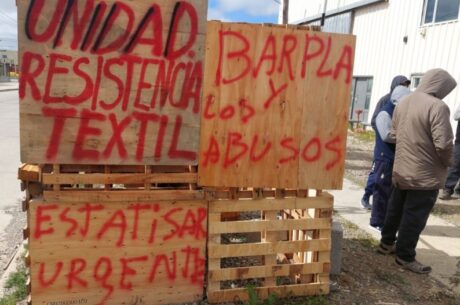 UNIDAD
RESISTENCIA
TEXTIL
BARPLA
Y
LOS
ABUSOS
ESTATISAR
URGENTE